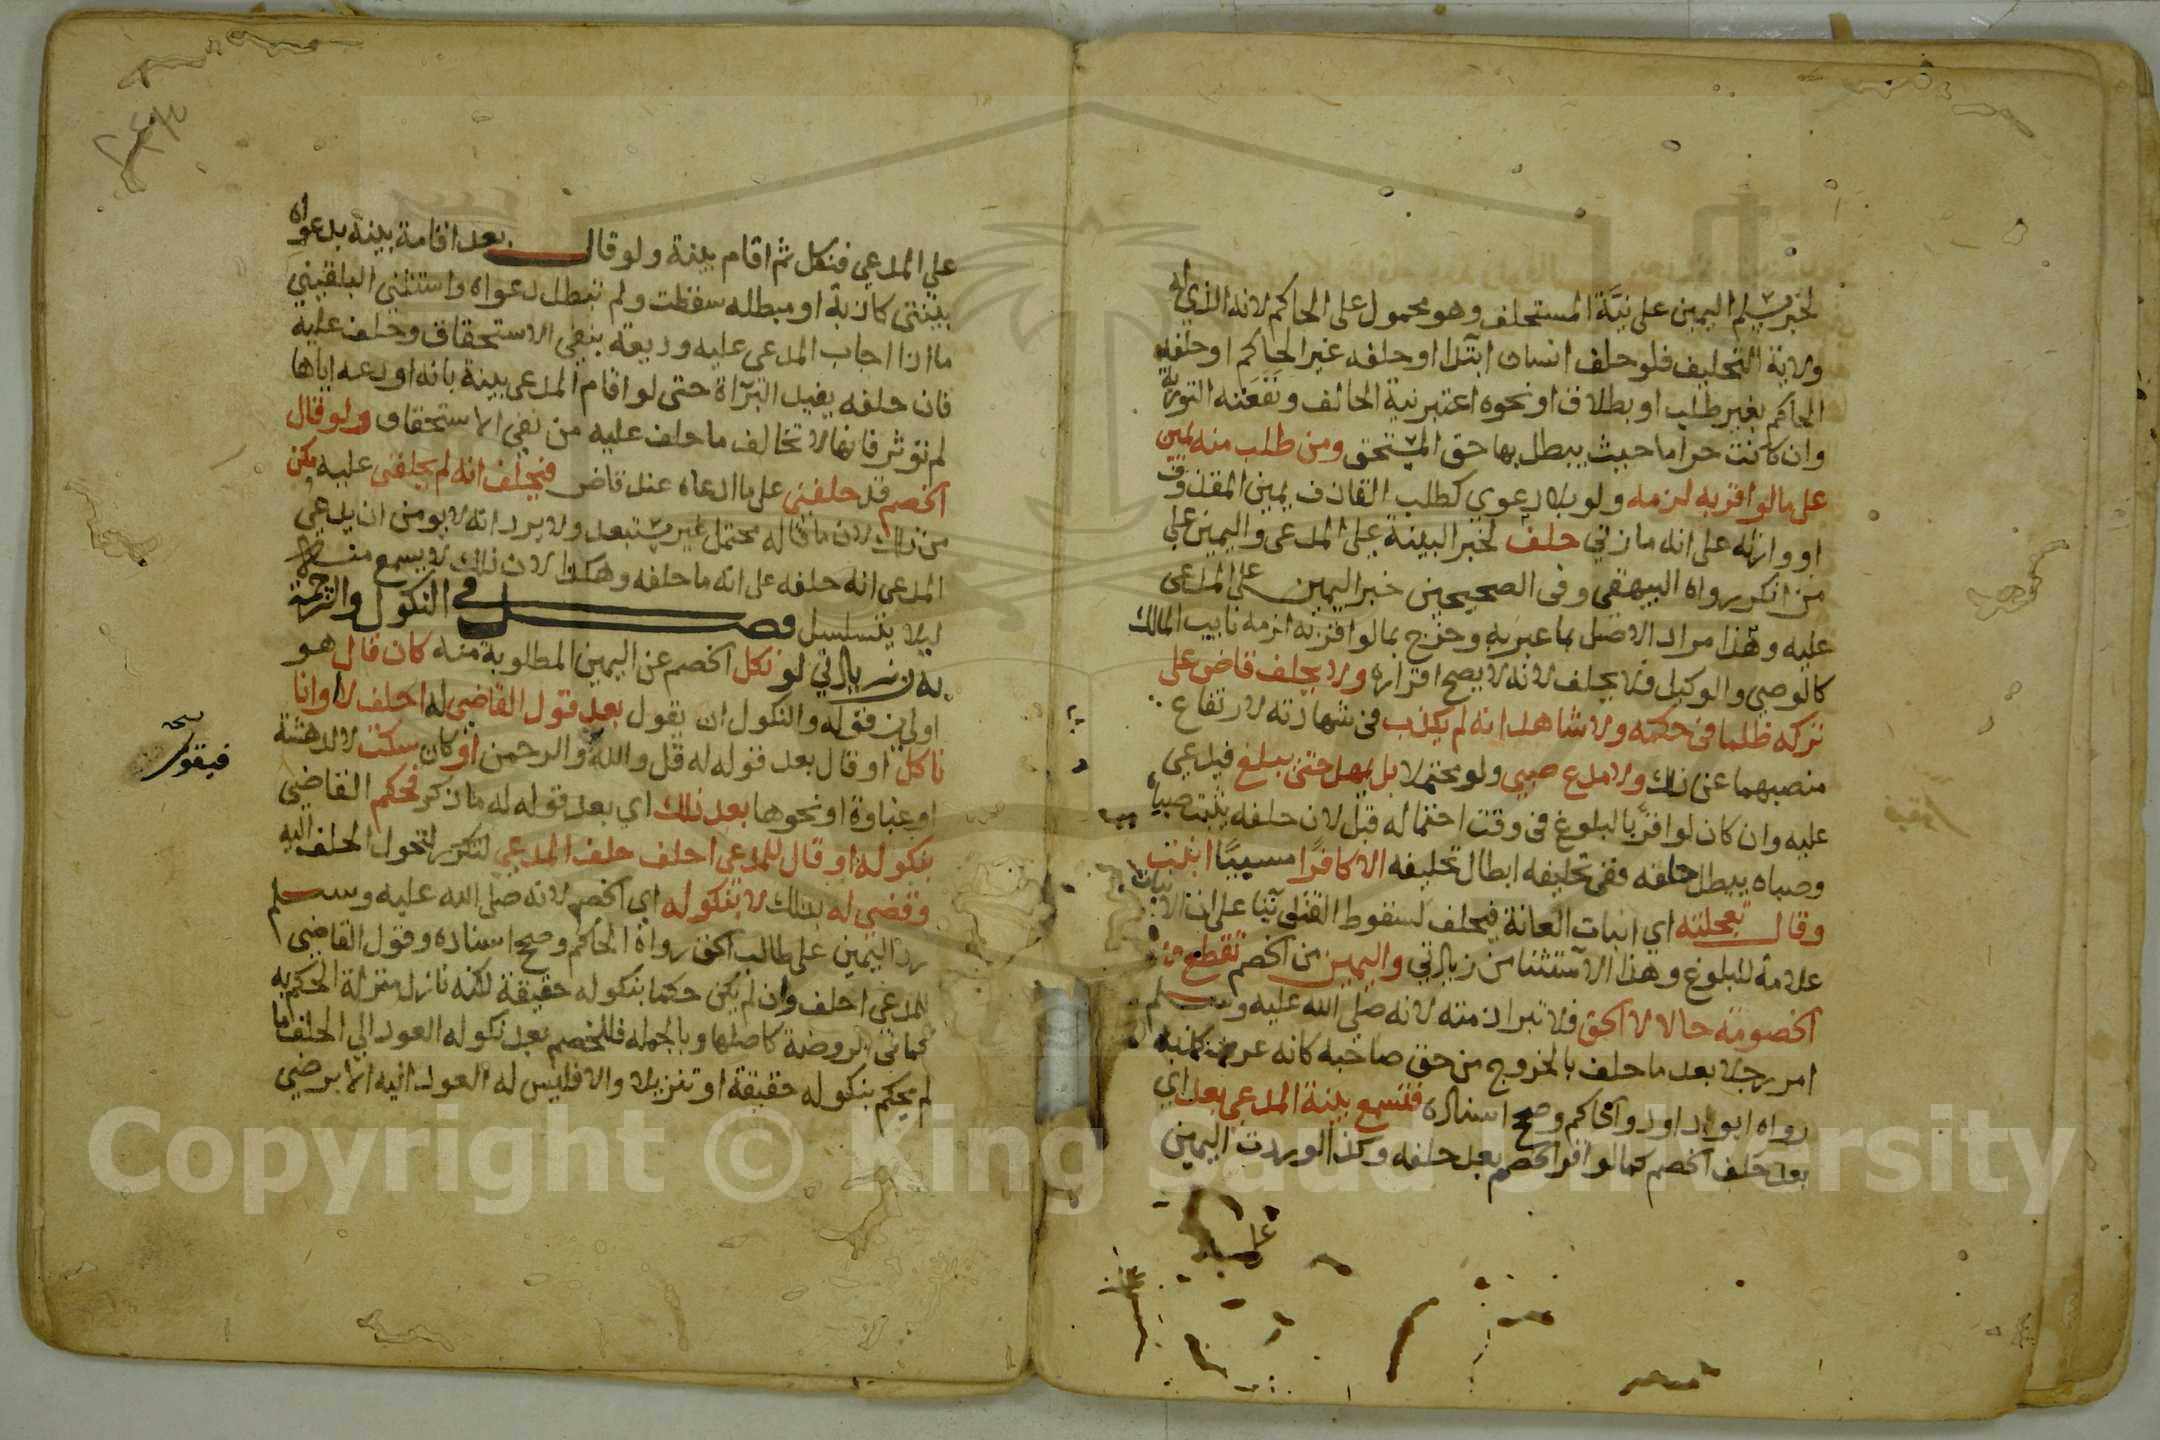 لخبر مسلم اليمين على نية المستحلف وهو محمول على الحاكم لانه الذي له
ولاية التحليف فلو حلف انسان ابتدا او حلفه غير الحاكم او حلفه
الحاكم بغير طلب او بطلاق او نحوه اعتبر نية الحالف ونفعته التورية
وان كانت حراما حيث يبطل بها حق المستحق ومن طلب منه يمين
على مالو اقر به لزمه ولو بلا دعوي كطلب القاذف يمين المقذوف
او وارثه على انه ما زني حلف لخبر البينة على المدعي واليمين علي
من انكر رواه البيهقي وفى الصحيحين خبر اليمين على المدعى
عليه وهذا مراد الاصل بما عبر به وخرج بما لو اقر به لزمه نايب المالك
كالوصي والوكيل فلا يحلف لانه لا يصح اقراره ولا يحلف قاض على
تركه ظلما فى حكمه ولا شاهد انه لم يكذب فى شهادته لارتفاع
منصبهما عن ذلك ولا مدع صبي ولو محتملا بل يمهل حتى يبلغ فيدعي
عليه وان كان لو اقر بالبلوغ فى وقت احتماله قبل لان حلفه يثبت صباه
وصباه يبطل حلفه ففى تحليفه ابطال تحليفه الا كافرا مسبيا انبت
وقال تعجلته اي انبات العانة فيحلف لسقوط القتل بنا على ان الانبات
علامة للبلوغ وهذا الاستثنا من زيادتي واليمين من الخصم تقطع
الخصومة حالا لا الحق فلا تبرا ذمته لانه صلى الله عليه وسلم
امر رجلا بعد ما حلف بالخروج من حق صاحبه كانه عرف كذبه
رواه ابو داود والحاكم وصحح اسناده فتسمع بينة المدعي بعد اي
بعد حلف الخصم كما لو اقر الخصم بعد حلفه وكذا لو ردت اليمين
على المدعي فنكل ثم اقام بينة ولو قال بعد اقامة بينة بدعواه
بينتى كاذبة او مبطله سقطت ولم تبطل دعواه واستثنى البلقيني
ما اذا اجاب المدعى عليه وديعة بنفي الاستحقاق وحلف عليه
فان حلفه يفيد البرآة حتى لو اقام المدعى بينة بانه اودعه اياها
لم تؤثر فانها لا تخالف ما حلف عليه من نفي الاستحقاق ولو قال
الخصم قد حلفني على ما ادعاه عند قاض فيحلف انه لم يحلفنى عليه مكن
من ذلك لان ما قاله محتمل غير مستبعد ولا يرد انه لا يومن ان يدعي
المدعى انه حلفه على انه ما حلفه وهكذا لان ذلك لا يسمع منه
ليلا يتسلسل فصل في النكول والترجمة
به من زيادتي لو نكل الخصم عن اليمين المطلوبة منه كان قال هو
اولى من قوله والنكول ان يقول بعد قول القاضى له احلف لا او انا
ناكل او قال بعد قوله له قل والله والرحمن او كان سكت لا لدهشة
او غباوة او نحوها بعد ذلك اي بعد قوله له ما ذكر فحكم القاضي
بنكوله او قال للمدعى احلف حلف المدعي لتحول الحلف اليه
وقضى له بذلك لا بنكوله اي الخصم لانه صلى الله عليه وسلم
رد اليمين على طالب الحق رواه الحاكم وصحح اسناده وقول القاضي
للمدعى احلف وان لم يكن حكما بنكوله حقيقة لكنه نازل منزلة الحكم به
كما فى الروضة كاصلها وبالجملة فللخصم بعد نكوله العود الي الحلف ما
لم يحكم بنكوله حقيقة او تنزيلا والا فليس له العود اليه الا برضي
فيقول
على
Copyright © King Saud University